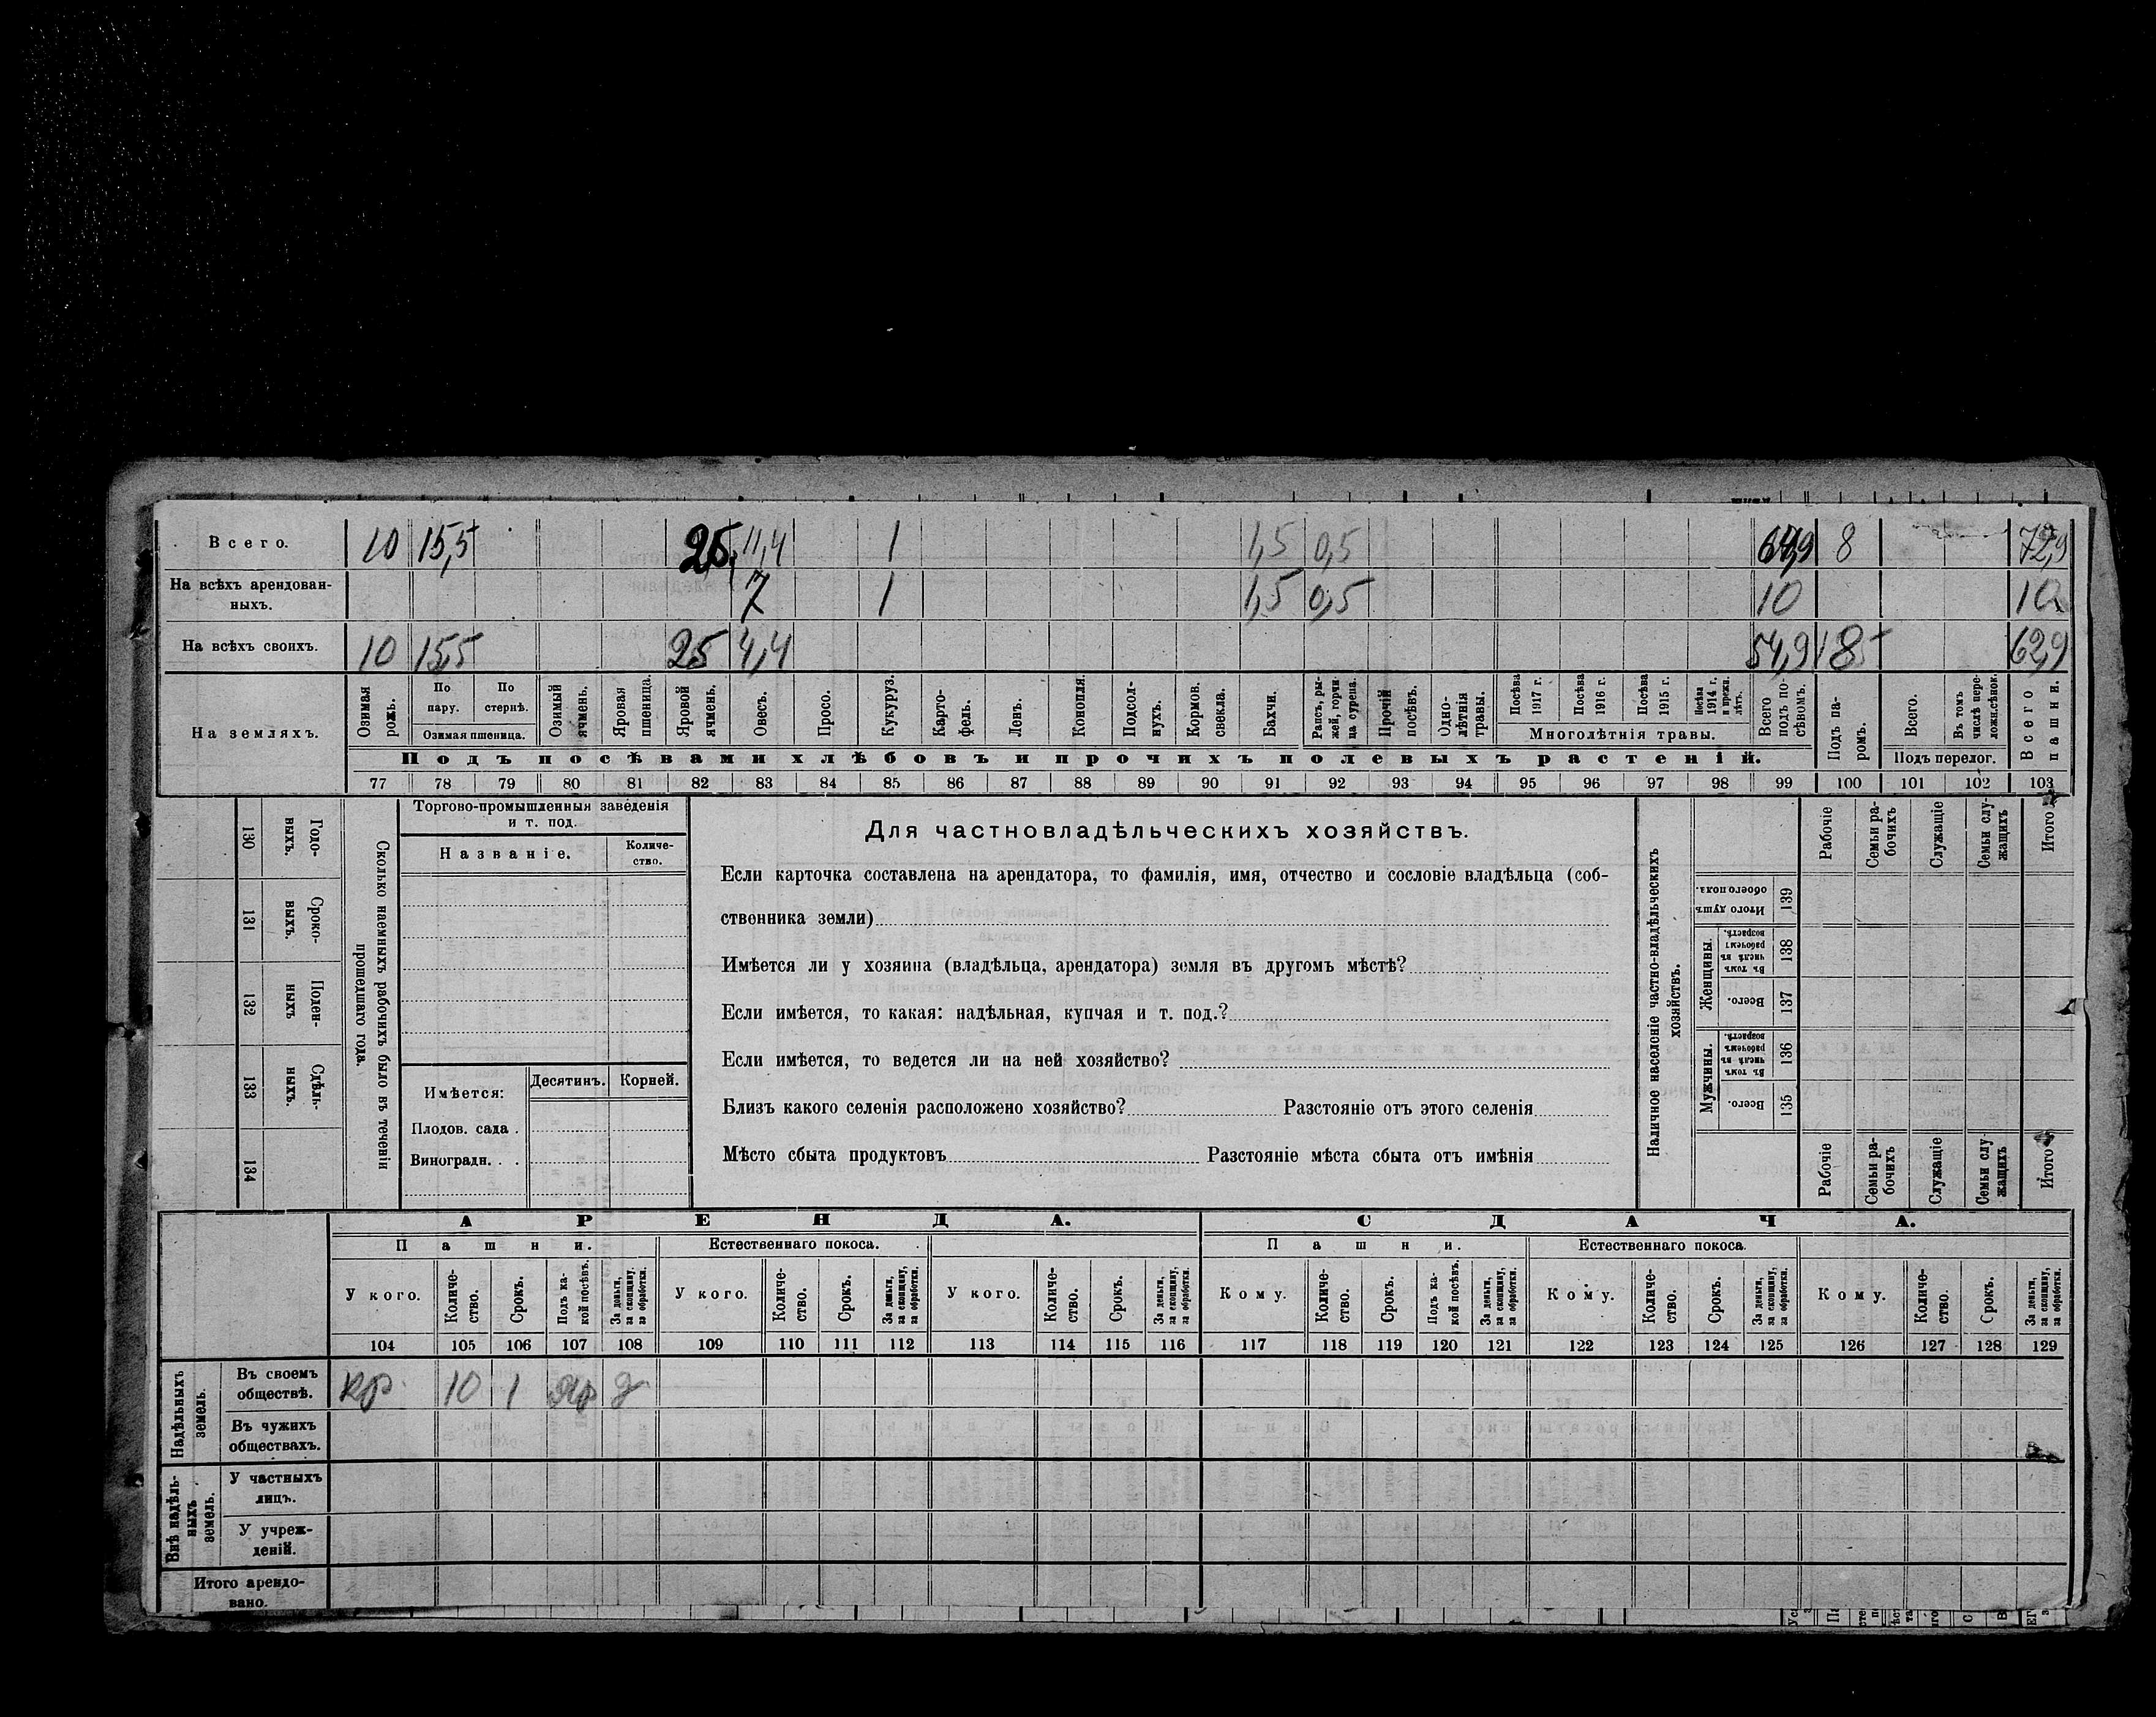 Всего. 10 15,5 25 11,4 1 1,5 0,5 64,9 8 72,9
На всѣхъ арендован-
ныхъ. 7 1 1,5 0,5 10 10
На всѣхъ своихъ. 10 15,5 25 4,4 54,9 8 62,9
На земляхъ.
Озимая рожь.
По пару.
По стернѣ.
Озимая пшеница.
Озимый ячмень.
Яровая пшеница.
Яровой ячмень.
Овесъ.
Просо.
Кукуруз.
Карто-
фель.
Ленъ.
Конопля.
Подсол-
нухъ.
Кормов. свекла.
Бахчи.
Рапсъ, ры-
жей, горчи-
ца сурепа.
Прочій посѣвъ.
Одно-
лѣтнія травы.
Посѣва 1917 г.
Посѣва 1916 г.
Посѣва 1915 г.
Посѣва 1914 г. и прежн. лѣтъ.
Многолѣтнія травы.
Всего подъ по-
сѣвомъ.
Подъ па-
ромъ.
Всего.
Въ томъ числѣ пере-
ложн.сѣнок.
Подъ перелог.
Всего пашни.
Подъ посѣвами хлѣбовъ и прочихъ полевыхъ растеній.
77 78 79 80 81 82 83 84 85 86 87 88 89 90 91 92 93 94 95 96 97 98 99 100 101 102 103
Сколько наемныхъ рабочихъ было въ теченіи
прошедшаго года.
Годо-
выхъ. 130
Сроко-
выхъ. 131
Поден-
ныхъ 132
Сдѣль-
ныхъ. 133
134
Торгово-промышленныя заведенія
и т. под.
Названіе.
Количе-
ство.
Имѣется: Десятинъ. Корней.
Плодов. сада .
Виноградн. . .
Для частновладѣльческихъ хозяйствъ.
Если карточка составлена на арендатора, то фамилія, имя, отчество и сословіе владѣльца (соб-
ственника земли)
Имѣется ли у хозяина (владѣльца, арендатора) земля въ другомъ мѣстѣ?
Если имѣется, то какая: надѣльная, купчая и т. под.?
Если имѣется, то ведется ли на ней хозяйство?
Близъ какого селенія расположено хозяйство? Разстояніе отъ этого селенія
Мѣсто сбыта продуктовъ Разстояніе мѣста сбыта отъ имѣнія
Наличное населеніе частно-владѣльческихъ
хозяйствъ.
Рабочіе
Семьи ра-
бочихъ
Служащіе
Семьи слу-
жащихъ
Итого
Итого душъ обоего пола. 139
Женщины.
Въ томъ числѣ въ рабочемъ возрастѣ. 138
Всего. 137
Мужчины.
Въ томъ числѣ въ рабочемъ возрастѣ. 136
Всего. 135
Рабочіе
Семьи ра-
бочихъ
Служащіе
Семьи слу-
жащихъ
Итого
АРЕНДА. СДАЧА.
Пашни. Естественнаго покоса. Пашни. Естественнаго покоса.
У кого.
Количе-
ство.
Срокъ.
Подъ ка-
кой посѣвъ.
За деньги,
за скопщину,
за обработки.
У кого.
Количе-
ство.
Срокъ.
За деньги,
за скопщину,
за обработки.
У кого.
Количе-
ство.
Срокъ.
За деньги,
за скопщину,
за обработки.
Кому.
Количе-
ство.
Срокъ.
Подъ ка-
кой посѣвъ.
За деньги,
за скопщину,
за обработки.
Кому.
Количе-
ство.
Срокъ.
За деньги,
за скопщину,
за обработки.
Кому.
Количе-
ство.
Срокъ.
За деньги,
за скопщину,
за обработки.
104 105 106 107 108 109 110 111 112 113 114 115 116 117 118 119 120 121 122 123 124 125 126 127 128 129
Надѣльныхъ
земель.
Въ своемъ
обществѣ. кр. 10 1 яр д
Въ чужихъ
обществахъ.
Внѣ надѣль-
ныхъ
земель.
У частныхъ
лицъ.
У учреж-
деній.
Итого арендо-
вано.